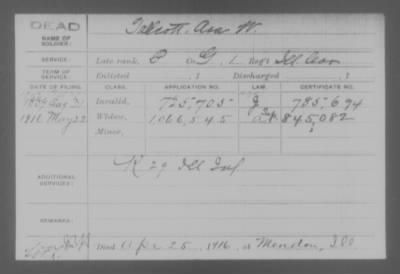 DEAD
NAME OF SOLDIER: Talcott, Asa W.
SERVICE: Late rank, P Co. G, 2 Reg't Ill. Cav.
TERM OF SERVICE: Enlisted , 1 Discharged , 1
DATE OF FILING. CLASS. APPLICATION NO. LAW. CERTIFICATE NO.
1889 Aug 21 Invalid, 725,705 J 735,694
1916 May 22 Widow, 1,066,545 845,082
Minor,
K 29 Ill Inf
ADDITIONAL SERVICES:
REMARKS:
Died Apr 25, 1916, at Mendon, Ill